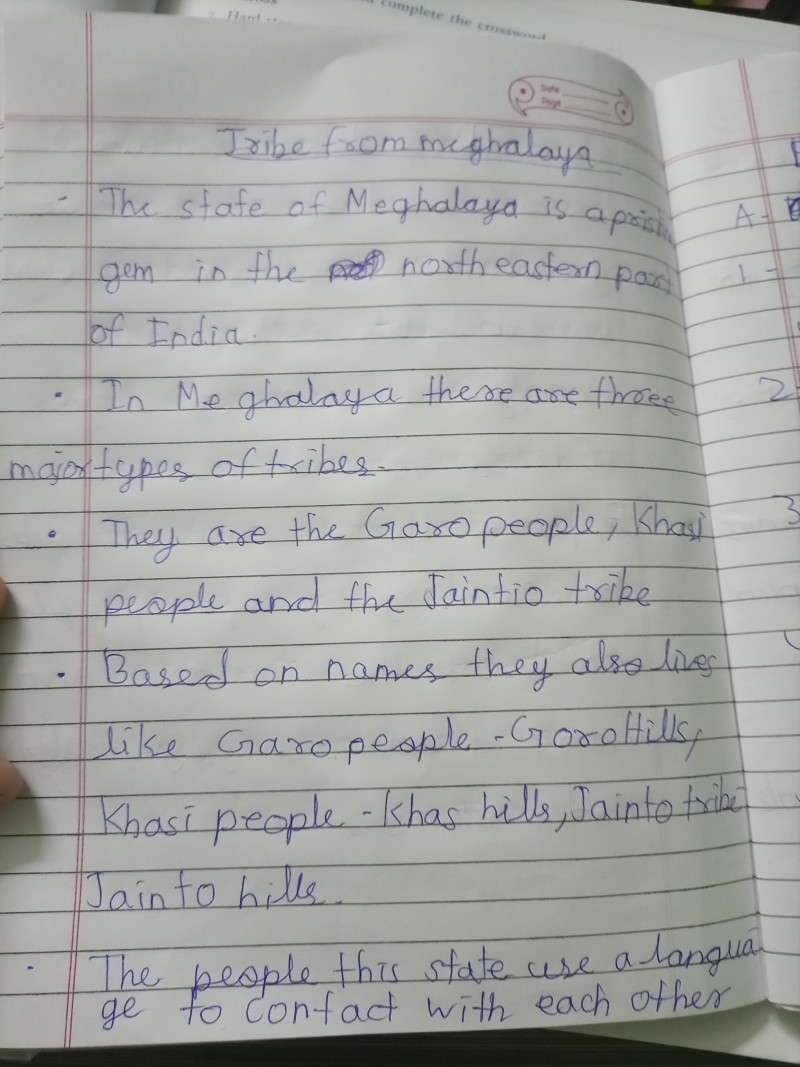 complete the crossword
Hard
Date
Page
Tribe from meghalaya
- The state of Meghalaya is a
gem in the north eastern part
of India.
• In Meghalaya there are three
major types of tribes.
• They are the Garo people, Khasi
people and the Jaintio tribe
• Based on names they also lives
like Garo people - Goro Hills,
Khasi people - Khas hills, Jainto tribe
Jainto hills.
• The people this state use a langua
ge to contact with each other
A-
1-
2
3